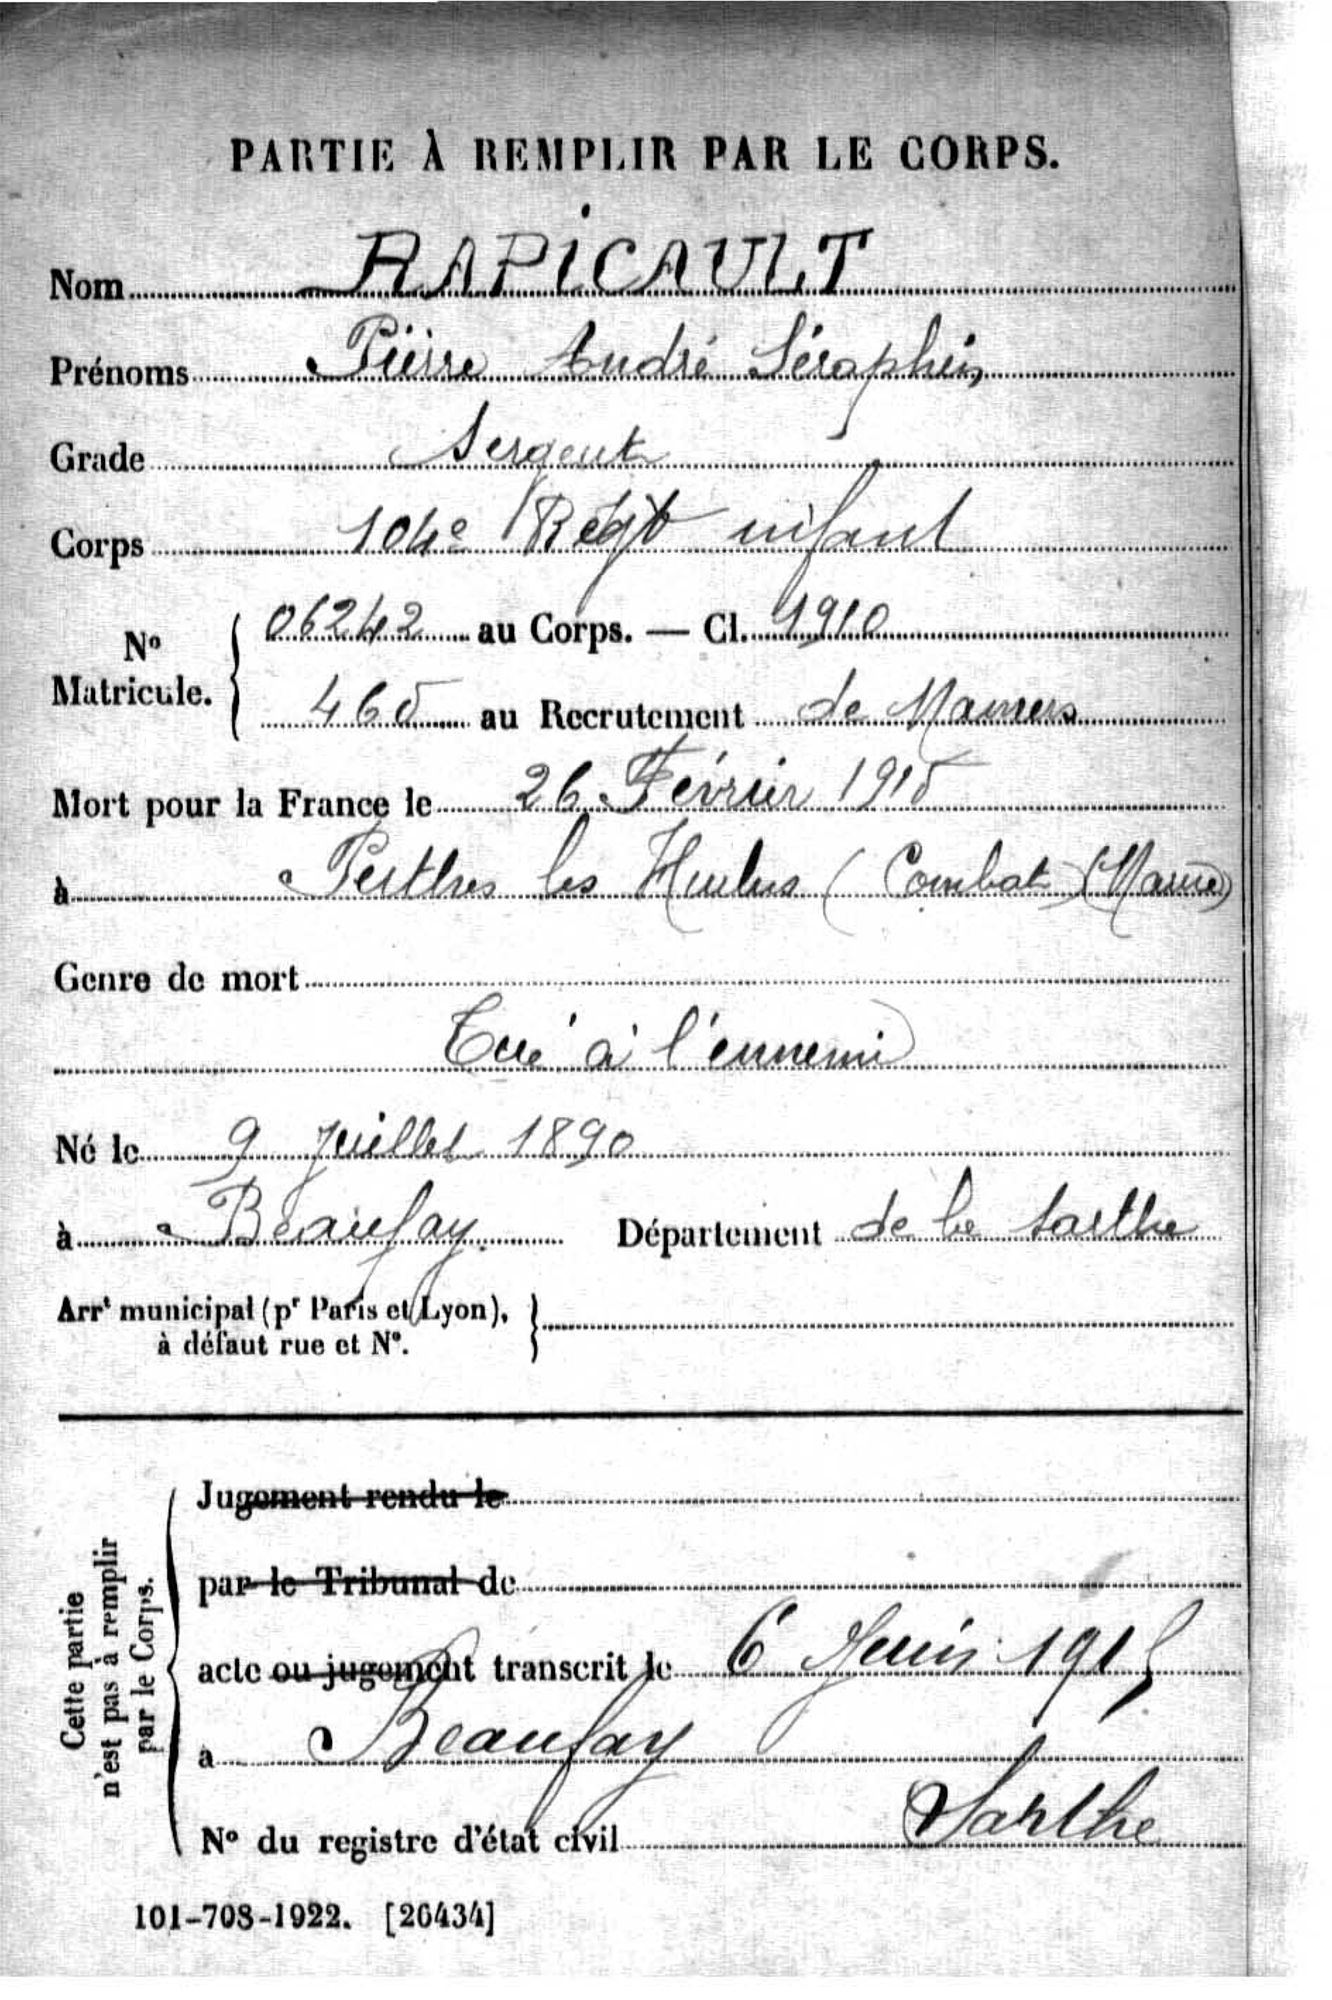 PARTIE À REMPLIR PAR LE CORPS.
Nom RAPICAULT
Prénoms Pierre André Séraphin
Grade Sergent
Corps 104e Regt infant
No Matricule. { 06242 au Corps. — Cl. 1910
465 au Recrutement de Mamers
Mort pour la France le 26 Février 1915
à Perthes les Hurlus (Combat) (Marne)
Genre de mort
Tué à l'ennemi
Né le 9 Juillet 1890
à Beaufay Département de la Sarthe
Arrt municipal (pr Paris et Lyon), à défaut rue et No.
Cette partie n'est pas à remplir par le Corps.
Jugement rendu le
par le Tribunal de
acte ou jugement transcrit le 6 Juin 1915
à Beaufay
Sarthe
No du registre d'état civil
101-708-1922. [26434]